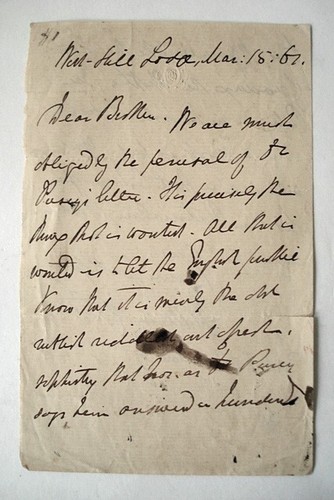 West-Hill Lodge, Mar: 15: 61.
Dear Brother. We are much
obliged by the perusal of Dr
Pusey's letter. It is precisely the
thing that is wanted. All that is
wanted is to let the English public
know that it is merely the old
rubbish out afresh,
sophistry that has, as Dr Pusey
says been answered a hundred